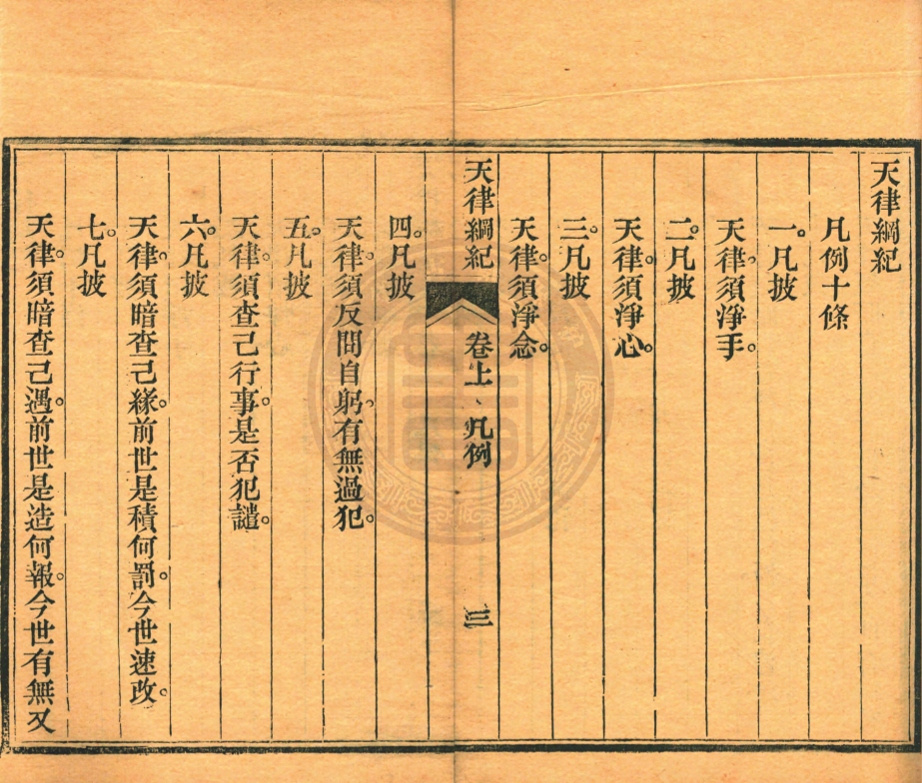 天律綱紀
凡例十條
一。凡披
天律。須淨手。
二。凡披
天律。須淨心。
三。凡披
天律。須淨念。
天律綱紀 卷上、凡例 三
四。凡披
天律。須反問自躬。有無過犯。
五。凡披
天律。須查己行事。是否犯譴。
六。凡披
天律。須暗查己緣。前世是積何罰。今世速改。
七。凡披
天律。須暗查己遇。前世是造何報。今世有無又